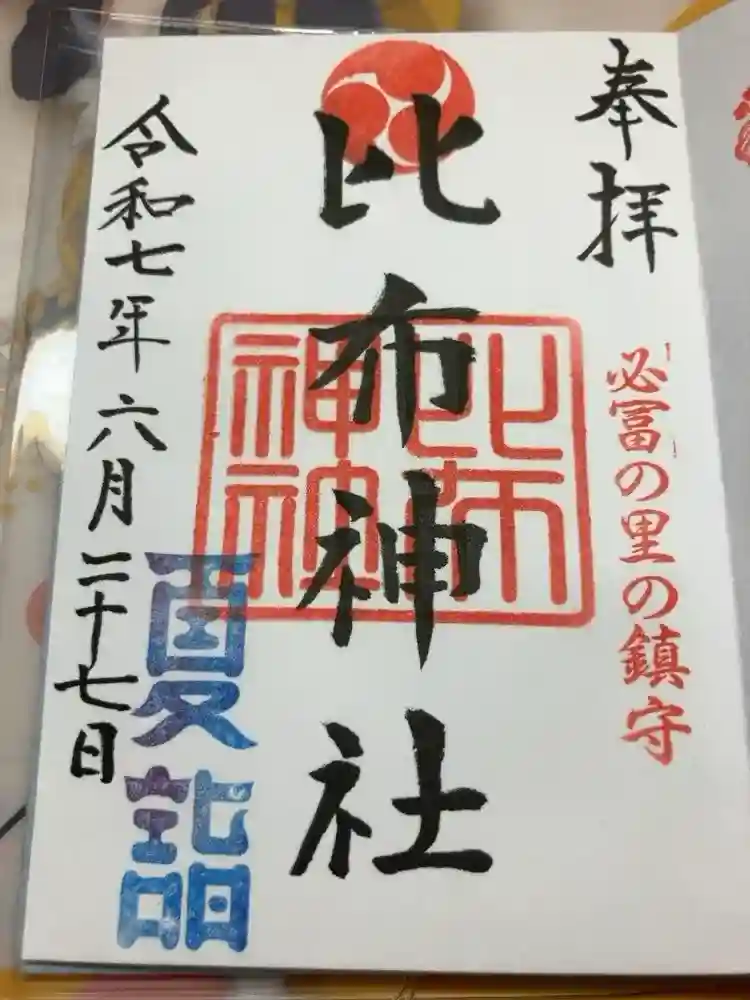 奉拝
必冨の里の鎮守
比布神社
比布
神社
令和七年六月二十七日
夏詣